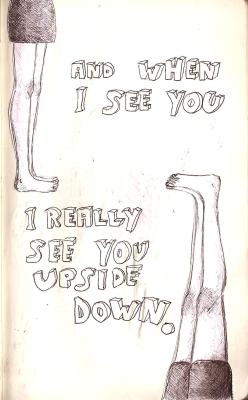 AND WHEN
I SEE YOU
I REALLY
SEE YOU
UPSIDE
DOWN.